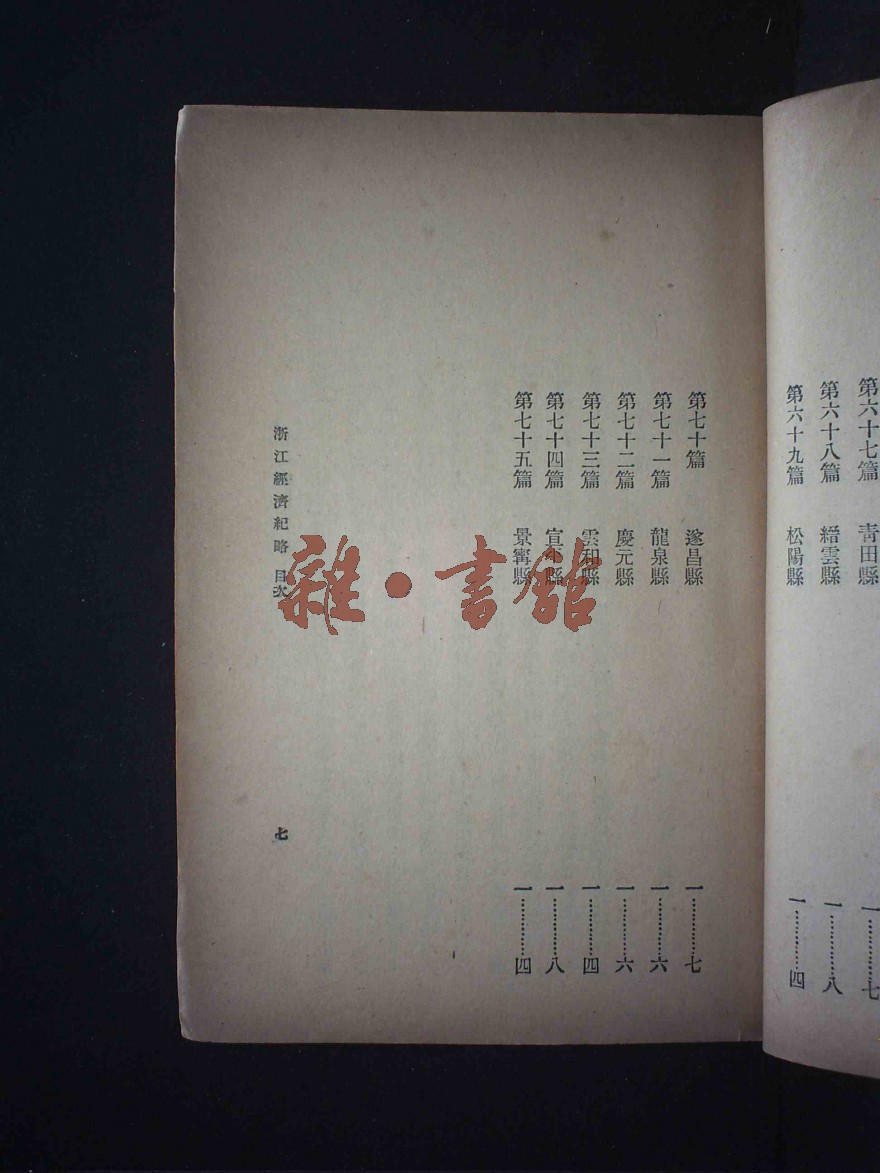 第六十七篇　青田縣　一…………七
第六十八篇　縉雲縣　一…………八
第六十九篇　松陽縣　一…………四
第七十篇　遂昌縣　一…………七
第七十一篇　龍泉縣　一…………六
第七十二篇　慶元縣　一…………六
第七十三篇　雲和縣　一…………四
第七十四篇　宣平縣　一…………八
第七十五篇　景寧縣　一…………四
浙江經濟紀略　目次　七
雜·書館